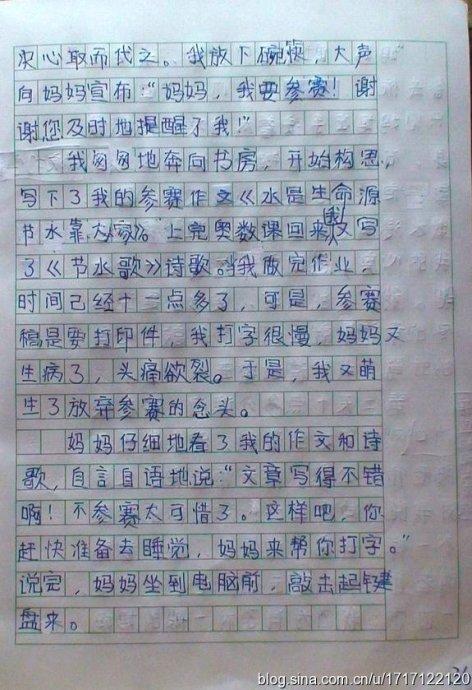 决心取而代之。我放下碗筷，大声
向妈妈宣布：“妈妈，我要参赛！谢
谢您及时地提醒了我！”
我匆匆地奔向书房，开始构思，
写下了我的参赛作文《水是生命源
节水靠大家》。上完奥数课回来，我又写
了《节水歌》诗歌。当我做完作业，
时间已经十一点多了，可是，参赛
稿是要打印件，我打字很慢，妈妈又
生病了，头痛欲裂。于是，我又萌
生了放弃参赛的念头。
妈妈仔细地看了我的作文和诗
歌，自言自语地说：“文章写得不错
啊！不参赛太可惜了。这样吧，你
赶快准备去睡觉，妈妈来帮你打字。”
说完，妈妈坐到电脑前，敲击起键
盘来。
blog.sina.com.cn/u/1717122120